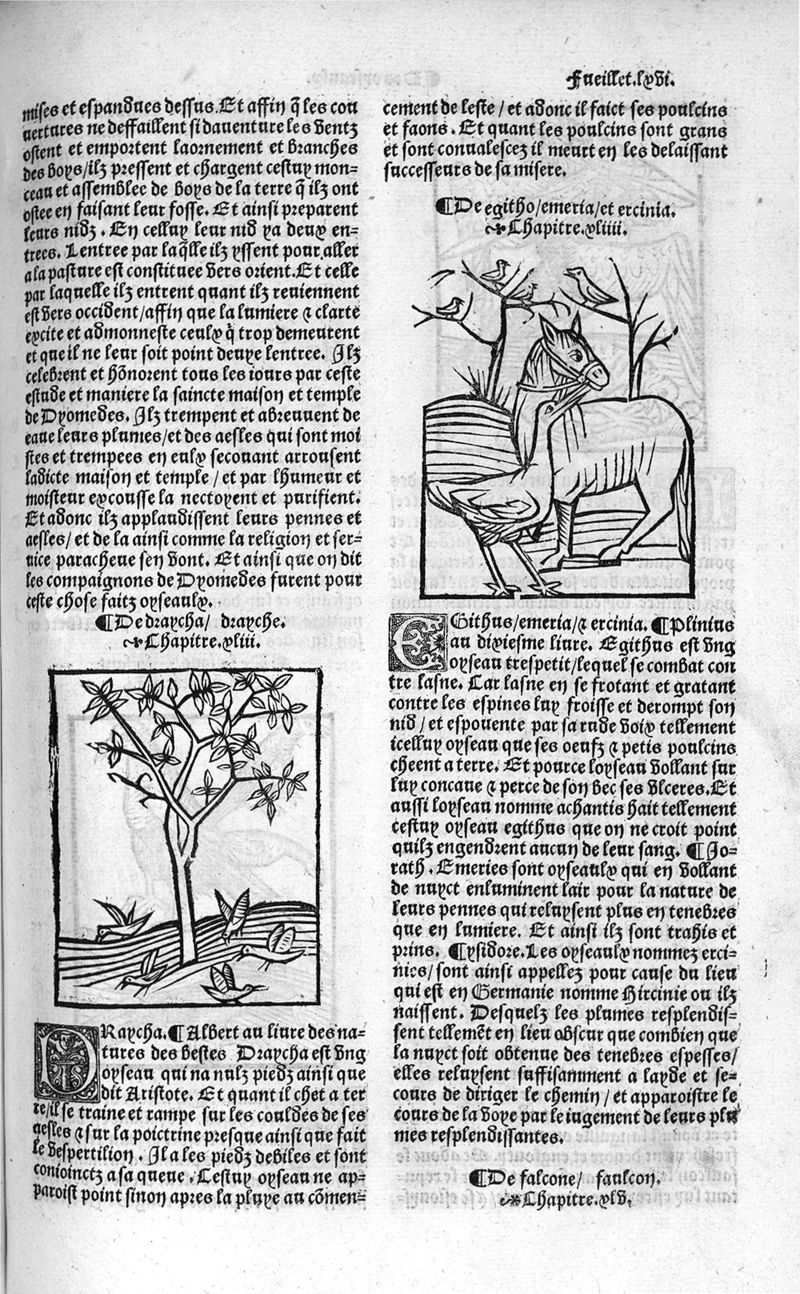 Fueillet.lxvi.
mises et espandues dessus. Et affin q̃ les cou
uertures ne deffaillent si dauenture les ventz
ostent et emportent laornement et branches
des boys/ilz pressent et chargent cestuy mon-
ceau et assemblee de boys de la terre q̃ ilz ont
ostee en faisant leur fosse. Et ainsi preparent
leurs nidz. En celluy leur nid ya deux en-
trees. Lentree par laq̃lle ilz yssent pour aller
a la pasture est constituee vers orient. Et celle
par laquelle ilz entrent quant ilz reuiennent
est vers occident/affin que la lumiere ⁊ clarte
excite et admonneste ceulx q̃ trop demeurent
et que il ne leur soit point deuye lentree. Ilz
celebrent et hõnorent tous les iours par ceste
estude et maniere la saincte maison et temple
de Dyomedes. Ilz trempent et abreuuent de
eaue leurs plumes/et des aesles qui sont moi
stes et trempees en eulx secouant arrousent
ladicte maison et temple/et par lhumeur et
moisteur excousse la nectoyent et purifient.
Et adonc ilz applaudissent leurs pennes et
aesles/et de la ainsi comme la religion et ser-
uice paracheue sen vont. Et ainsi que on dit
les compaignons de Dyomedes furent pour
ceste chose faitz oyseaulx.
¶De draycha/ drayche.
Chapitre.xliii.
DRaycha. ¶Albert au liure des na-
tures des bestes Draycha est vng
oyseau qui na nulz piedz ainsi que
dit Aristote. Et quant il chet a ter
re/il se traine et rampe sur les couldes de ses
aesles ⁊ sur la poictrine presque ainsi que fait
le vespertilion. Il a les piedz debiles et sont
conioinctz a sa queue. Cestuy oyseau ne ap-
paroist point sinon apres la pluye au cõmen-
cement de leste/et adonc il faict ses poulcins
et faons. Et quant les poulcins sont grans
et sont conualescez il meurt en les delaissant
successeurs de sa misere.
¶De egitho/emeria/et ercinia.
Chapitre.xliiii.
EGithus/emeria/⁊ ercinia. ¶Plinius
au dixiesme liure. Egithus est vng
oyseau trespetit/lequel se combat con
tre lasne. Car lasne en se frotant et gratant
contre les espines luy froisse et derompt son
nid/et espouente par sa rude voix tellement
icelluy oyseau que ses oeufz ⁊ petis poulcins
cheent a terre. Et pource loyseau vollant sur
luy concaue ⁊ perce de son bec ses vlceres. Et
aussi loyseau nomme achantis hait tellement
cestuy oyseau egithus que on ne croit point
quilz engendrent aucun de leur sang. ¶Jo-
rath. Emeries sont oyseaulx qui en vollant
de nuyct enluminent lair pour la nature de
leurs pennes qui reluysent plus en tenebres
que en lumiere. Et ainsi ilz sont trahis et
prins. ¶Ysidore. Les oyseaulx nommez erci-
nies/sont ainsi appellez pour cause du lieu
qui est en Germanie nomme Hircinie ou ilz
naissent. Desquelz les plumes resplendis-
sent tellemẽt en lieu obscur que combien que
la nuyct soit obtenue des tenebres espesses/
elles reluysent suffisamment a layde et se-
cours de diriger le chemin/et apparoistre le
cours de la voye par le iugement de leurs plu
mes resplendissantes.
¶De falcone/ faulcon.
Chapitre.xlv.